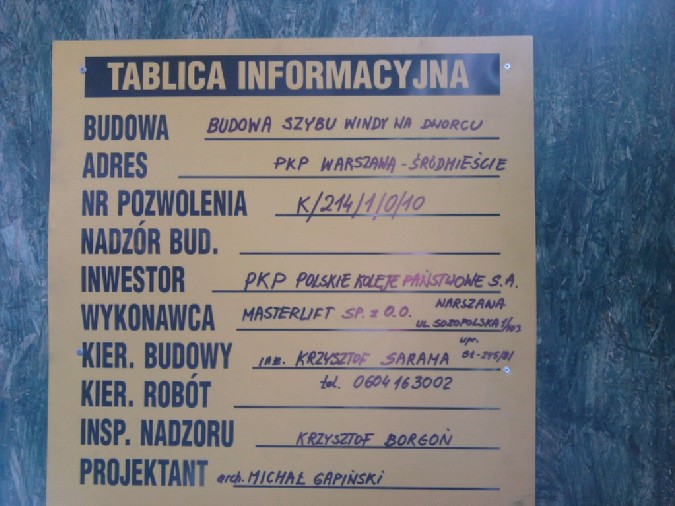 TABLICA INFORMACYJNA
BUDOWA BUDOWA SZYBU WINDY NA DWORCU
ADRES PKP WARSZAWA-ŚRÓDMIEŚCIE
NR POZWOLENIA K/214/1/0/10
NADZÓR BUD.
INWESTOR PKP POLSKIE KOLEJE PAŃSTWOWE S.A.
WYKONAWCA MASTERLIFT SP. z O.O. WARSZAWA
UL. SOZOPOLSKA 1/103
KIER. BUDOWY inż. KRZYSZTOF SARAMA upr.
tel. 0604163002
KIER. ROBÓT
INSP. NADZORU KRZYSZTOF BORGOŃ
PROJEKTANT arch. MICHAŁ GAPIŃSKI